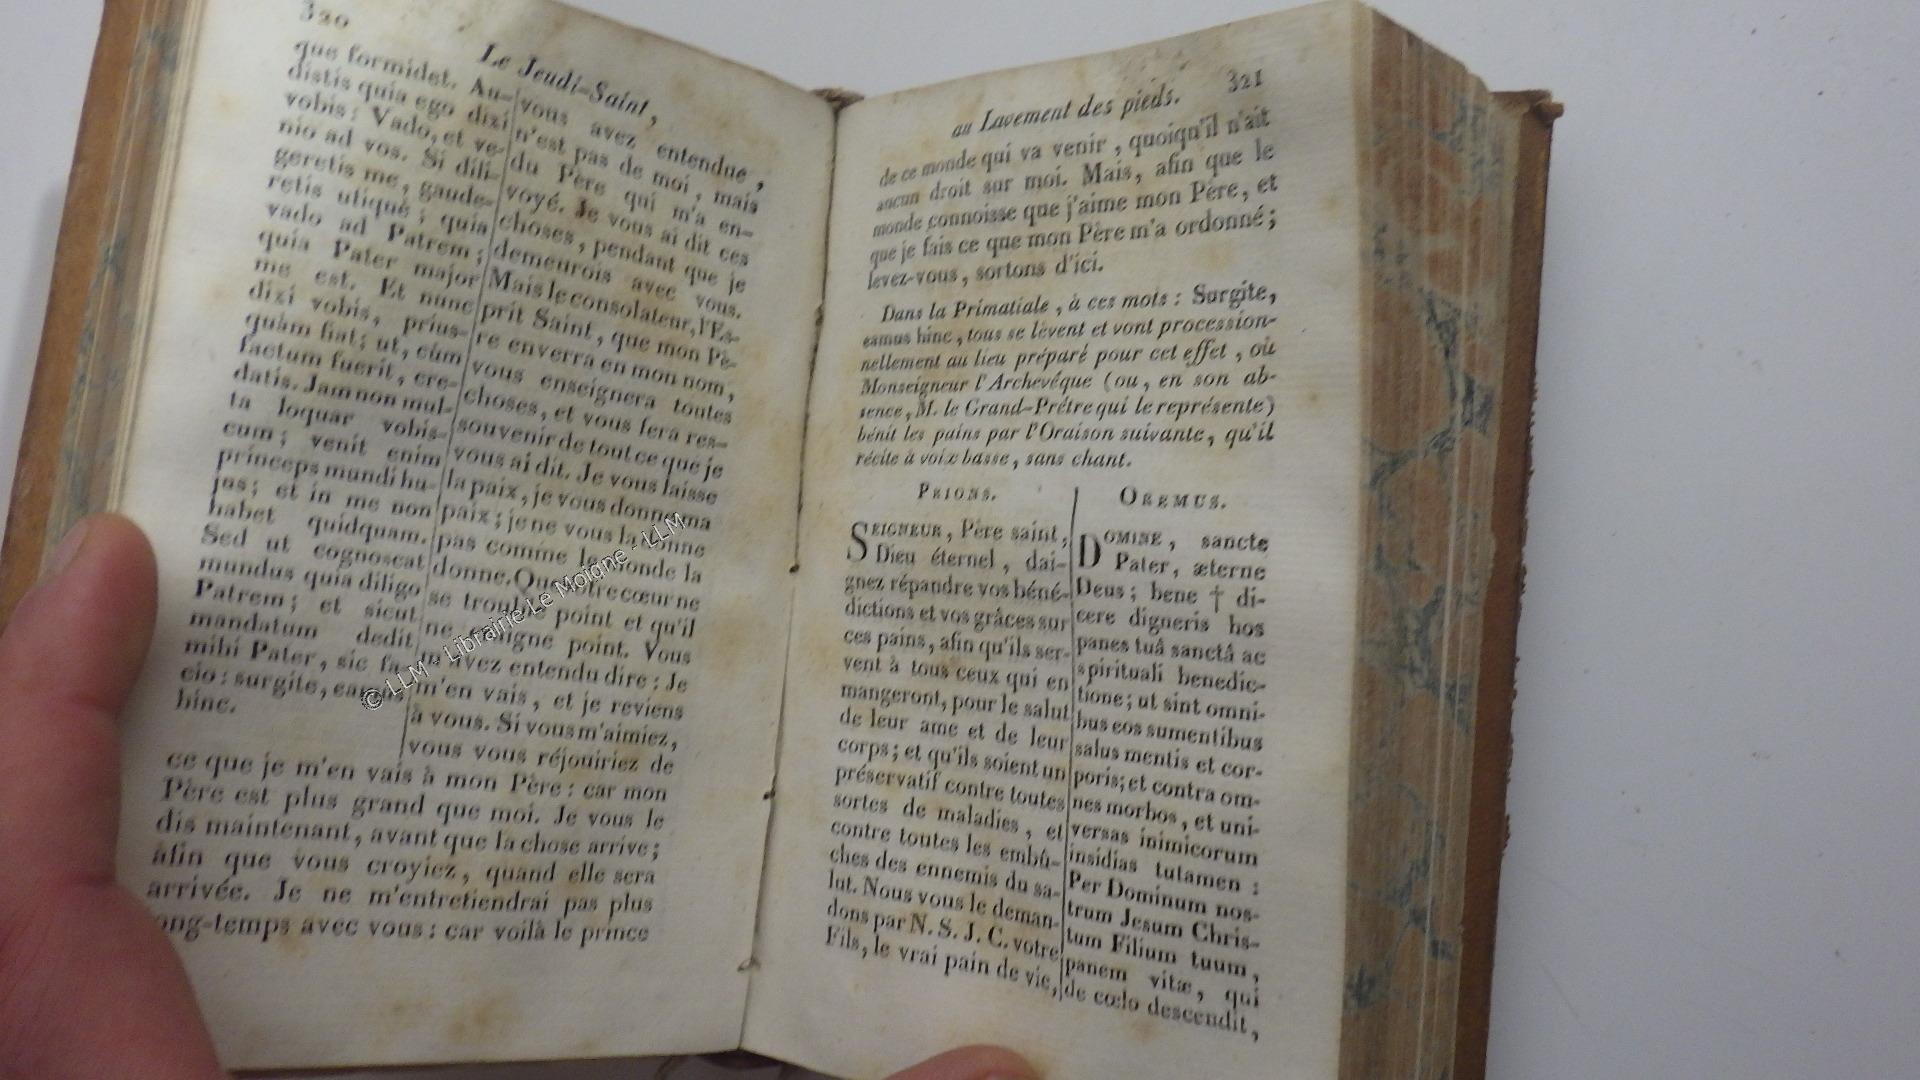 320
Le Jeudi-Saint,
que formidet. Au-
distis quia ego dixi
vobis: Vado, et ve-
nio ad vos. Si dili-
geretis me, gaude-
retis utiquè; quia
vado ad Patrem;
quia Pater major
me est. Et nunc
dixi vobis, prius-
quàm fiat; ut, cùm
factum fuerit, cre-
datis. Jam non mul-
ta loquar vobis-
cum; venit enim
princeps mundi hu-
jus; et in me non
habet quidquam.
Sed ut cognoscat
mundus quia diligo
Patrem; et sicut
mandatum dedit
mihi Pater, sic fa-
cio: surgite, eamus
hinc.
vous avez entendue,
n'est pas de moi, mais
du Père qui m'a en-
voyé. Je vous ai dit ces
choses, pendant que je
demeurois avec vous.
Mais le consolateur, l'Es-
prit Saint, que mon Pè-
re enverra en mon nom,
vous enseignera toutes
choses, et vous fera res-
souvenir de tout ce que je
vous ai dit. Je vous laisse
la paix, je vous donne ma
paix; je ne vous la donne
pas comme le monde la
donne. Que votre cœur ne
se trouble point et qu'il
ne craigne point. Vous
m'avez entendu dire: Je
m'en vais, et je reviens
à vous. Si vous m'aimiez,
vous vous réjouiriez de
ce que je m'en vais à mon Père: car mon
Père est plus grand que moi. Je vous le
dis maintenant, avant que la chose arrive;
afin que vous croyiez, quand elle sera
arrivée. Je ne m'entretiendrai pas plus
ong-temps avec vous: car voilà le prince
au Lavement des pieds. 321
de ce monde qui va venir, quoiqu'il n'ait
aucun droit sur moi. Mais, afin que le
monde connoisse que j'aime mon Père, et
que je fais ce que mon Père m'a ordonné;
levez-vous, sortons d'ici.
Dans la Primatiale, à ces mots: Surgite,
eamus hinc, tous se lèvent et vont procession-
nellement au lieu préparé pour cet effet, où
Monseigneur l'Archevêque (ou, en son ab-
sence, M. le Grand-Prêtre qui le représente)
bénit les pains par l'Oraison suivante, qu'il
récite à voix basse, sans chant.
PRIONS.
SEIGNEUR, Père saint,
Dieu éternel, dai-
gnez répandre vos béné-
dictions et vos grâces sur
ces pains, afin qu'ils ser-
vent à tous ceux qui en
mangeront, pour le salut
de leur ame et de leur
corps; et qu'ils soient un
préservatif contre toutes
sortes de maladies, et
contre toutes les embû-
ches des ennemis du sa-
lut. Nous vous le deman-
dons par N. S. J. C. votre
Fils, le vrai pain de vie,
OREMUS.
DOMINE, sancte
Pater, æterne
Deus; bene † di-
cere digneris hos
panes tuâ sanctâ ac
spirituali benedic-
tione; ut sint omni-
bus eos sumentibus
salus mentis et cor-
poris; et contra om-
nes morbos, et uni-
versas inimicorum
insidias tutamen:
Per Dominum nos-
trum Jesum Chris-
tum Filium tuum,
panem vitæ, qui
de cœlo descendit,
© LLM - Librairie Le Moigne - LLM